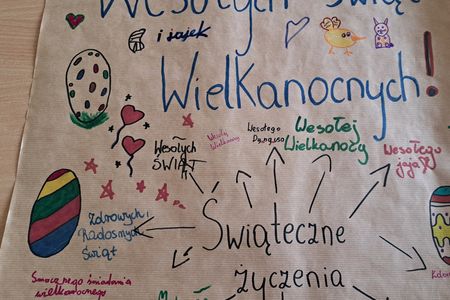 Wesołych Świąt
i jajek
Wielkanocnych!
Wesołych
ŚWIĄT
Wesołej
Wielkanocy
Wesołego
Dyngusa
Wesołej
Wielkanocy
Wesołego
jaja
Zdrowych,
Radosnych
Świąt
Świąteczne
życzenia
Smacznego śniadania
wielkanocnego